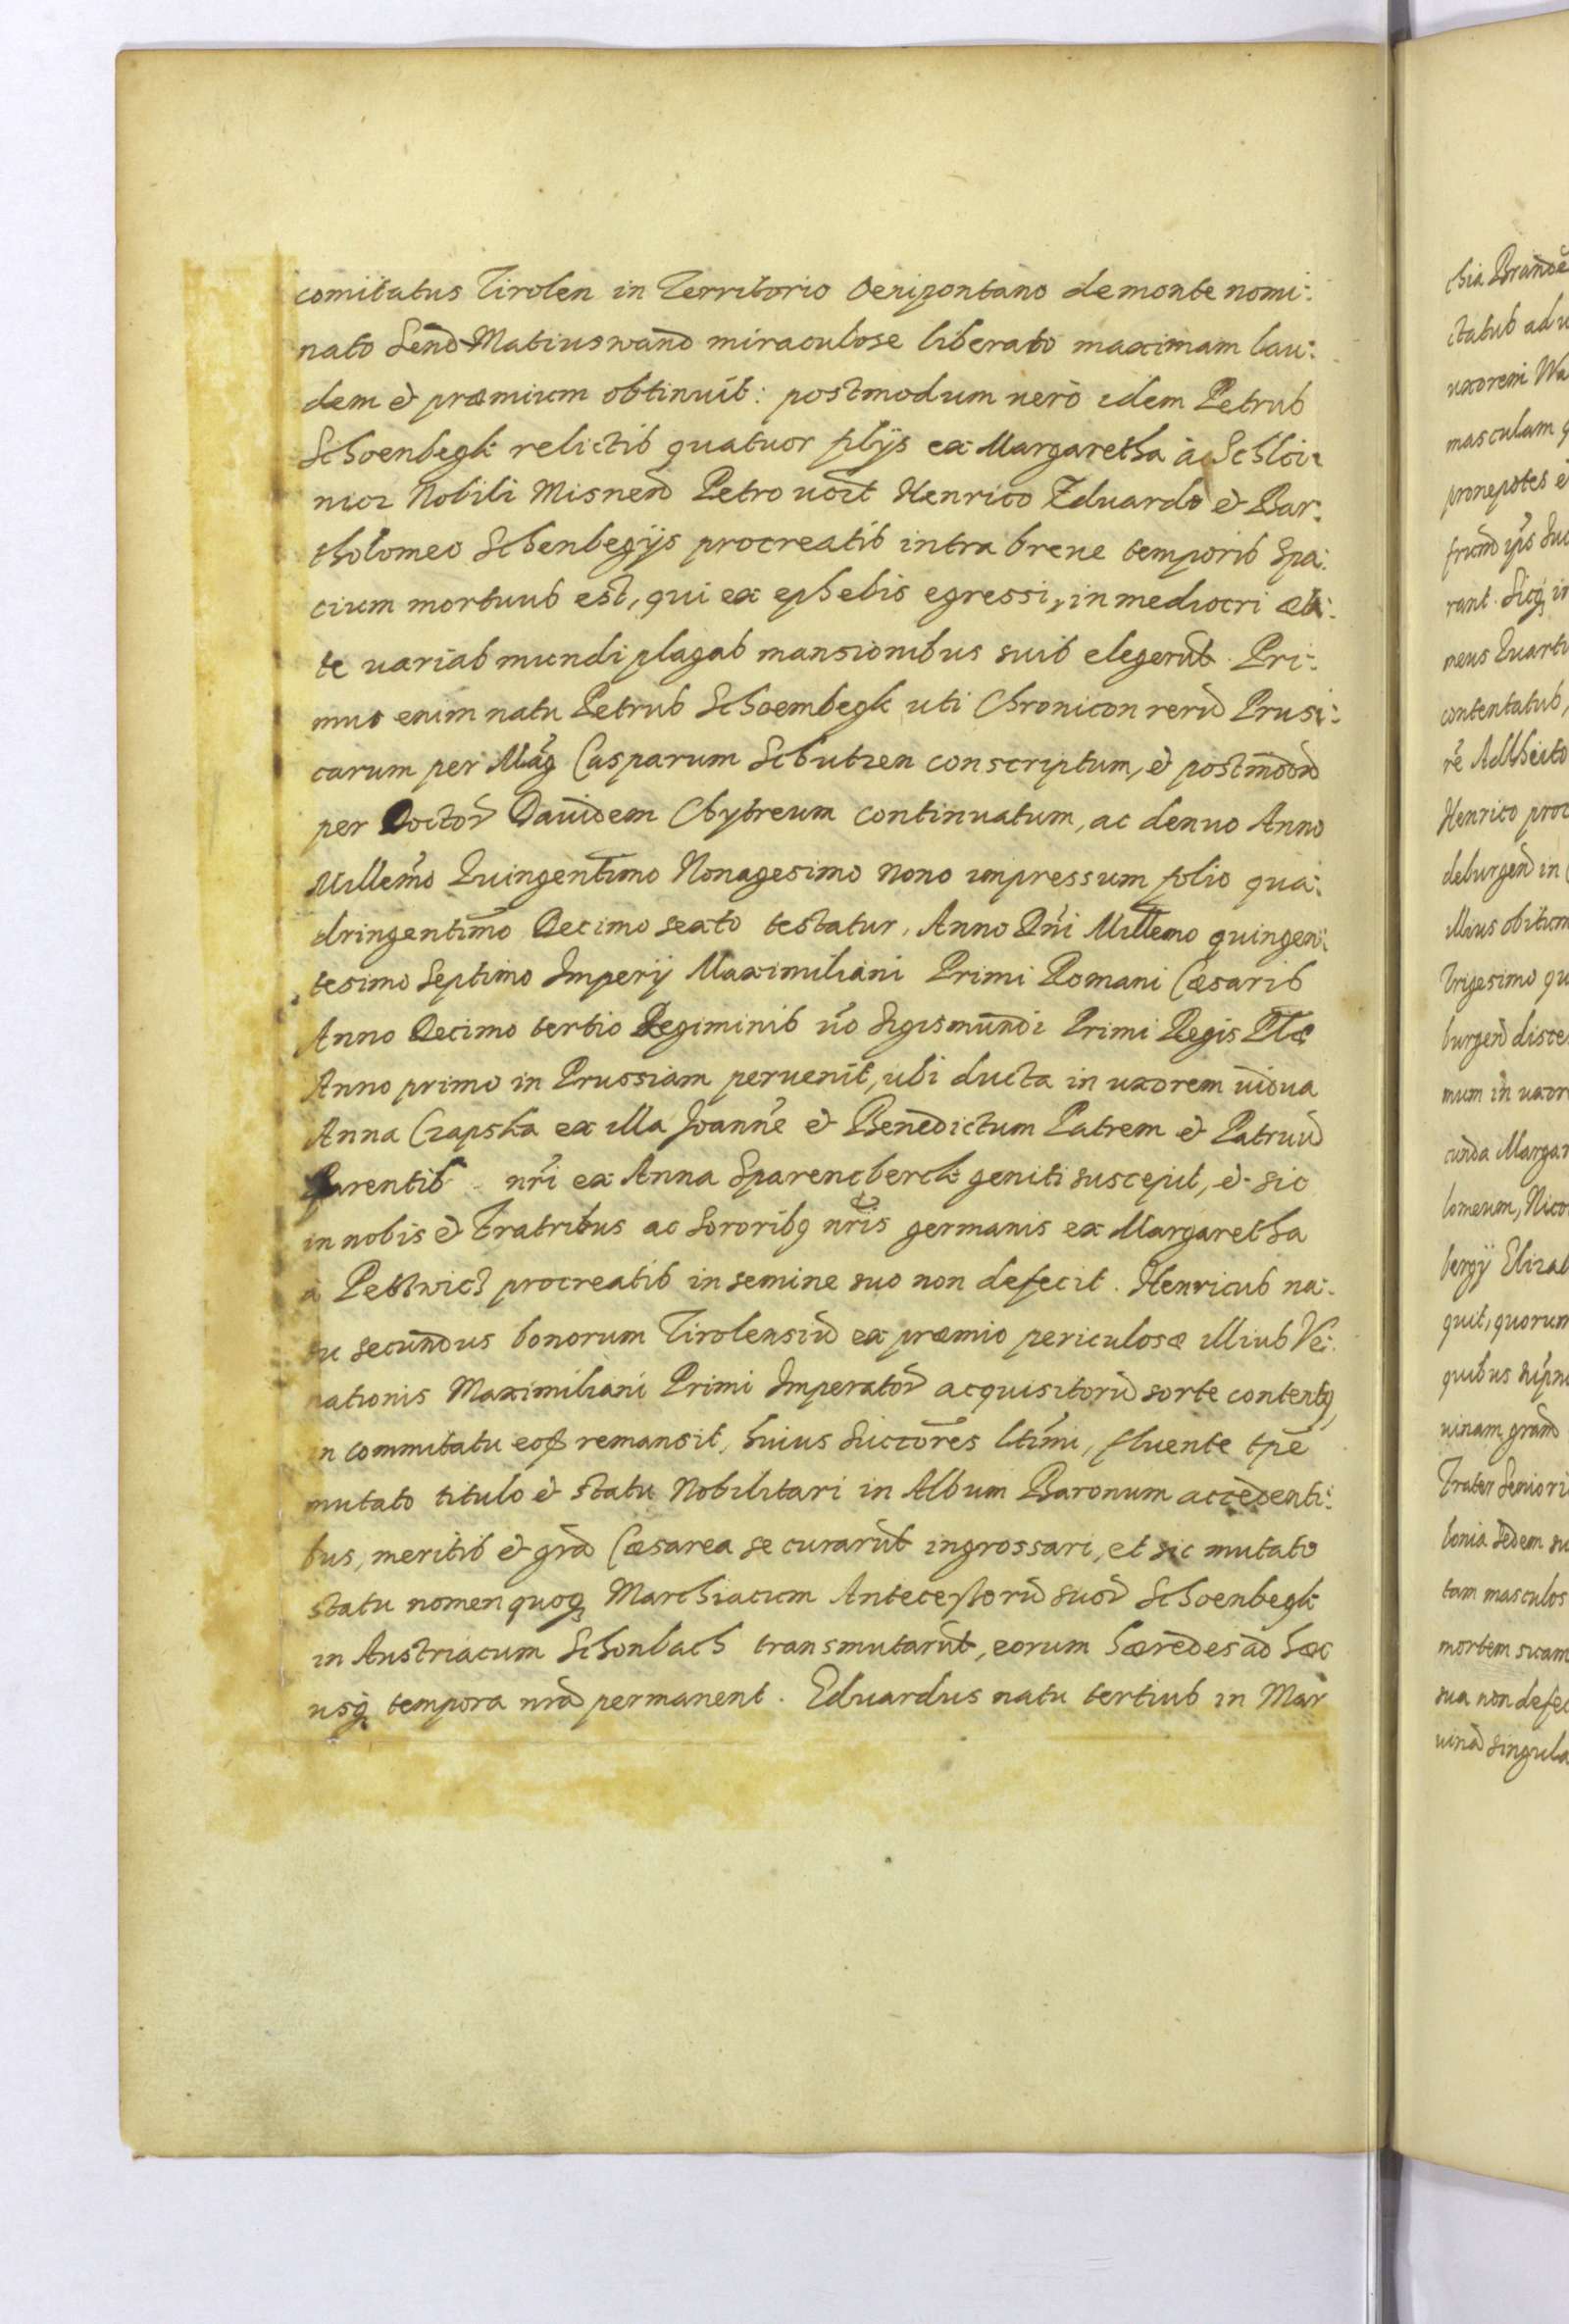 comitatus Tirolen in Territorio Oenipontano de monte nomi:
nato Send Matiuswand miraculose liberato maximam lau:
dem et præmium obtinuit: postmodum uerò idem Petrus
Schoenbegk relictis quatuor filijs ex Margaretha à Schlei:
nicz Nobili Misnen Petro uczt Henrico Eduardo et Bar:
tholomeo Schenbegijs procreatis intra breue temporis Spa:
cium mortuus est, qui ex ephebis egressi, in mediocri æta:
te uarias mundi plagas mansionibus suis elegerūt. Pri:
mus enim natu Petrus Schoembegk uti Chronicon rerū Prusi:
carum per Mag Casparum Schutzen conscriptum, et postmodū
per Doctor Dauidem Chytreum continuatum, ac denuo Anno
Millemo Quingentimo Nonagesimo nono impressum folio qua:
dringentimo Decimo sexto testatur, Anno Dni Millemo quingen:
tesimo Septimo Imperij Maximiliani Primi Romani Cæsaris
Anno Decimo tertio Regiminis uo Sigismundi Primi Regis Plæ
Anno primo in Prussiam peruenit, ubi ducta in uxorem uidua
Anna Czapska ex illa Joanne et Benedictum Patrem et Patruū
Parentis nri ex Anna Sparencberck geniti suscepit, et sic
in nobis et Fratribus ac Sororibq nris germanis ex Margaretha
à Petthwicz procreatis in semine suo non defecit. Henricus na:
tu secundus bonorum Tirolensiū ex præmio periculosæ illius Ve:
nationis Maximiliani Primi Imperator acquisitorū sorte contentq
in commitatu eod remansit, huius Succores ltimi, fluente tpe
mutato titulo et statu Nobilitari in Album Baronum accedenti:
bus, meritis et gra Cæsarea se curarūt ingrossari, et sic mutato
statu nomen quoq Marchiacum Antecessorū suor Schoenbegk
in Austriacum Schonbach transmutarūt, eorum hæredes ad hæc
usq tempora nra permanent. Eduardus natu tertius in Mar